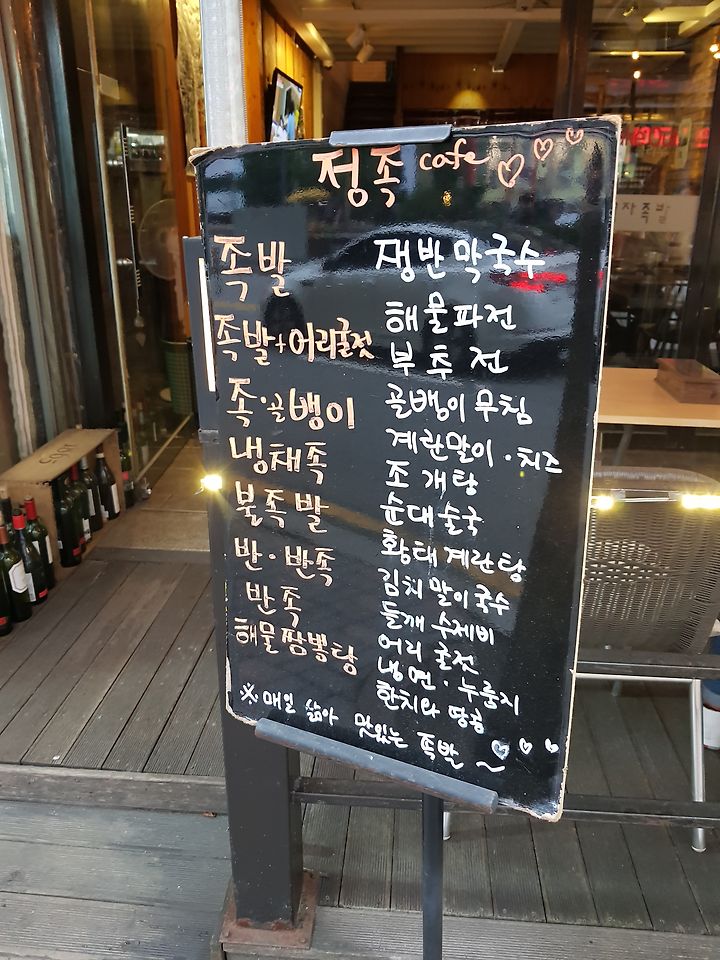 정족 cafe
족발
족발+어리굴젓
족·골뱅이
냉채족
불족발
반·반족
반족
해물짬뽕탕
쟁반막국수
해물파전
부추전
골뱅이무침
계란말이·치즈
조개탕
순대술국
황태계란탕
김치말이국수
들깨수제비
어리굴젓
냉면·누룽지
한치와 땅콩
※매일 삶아 맛있는 족발~
족발
1605